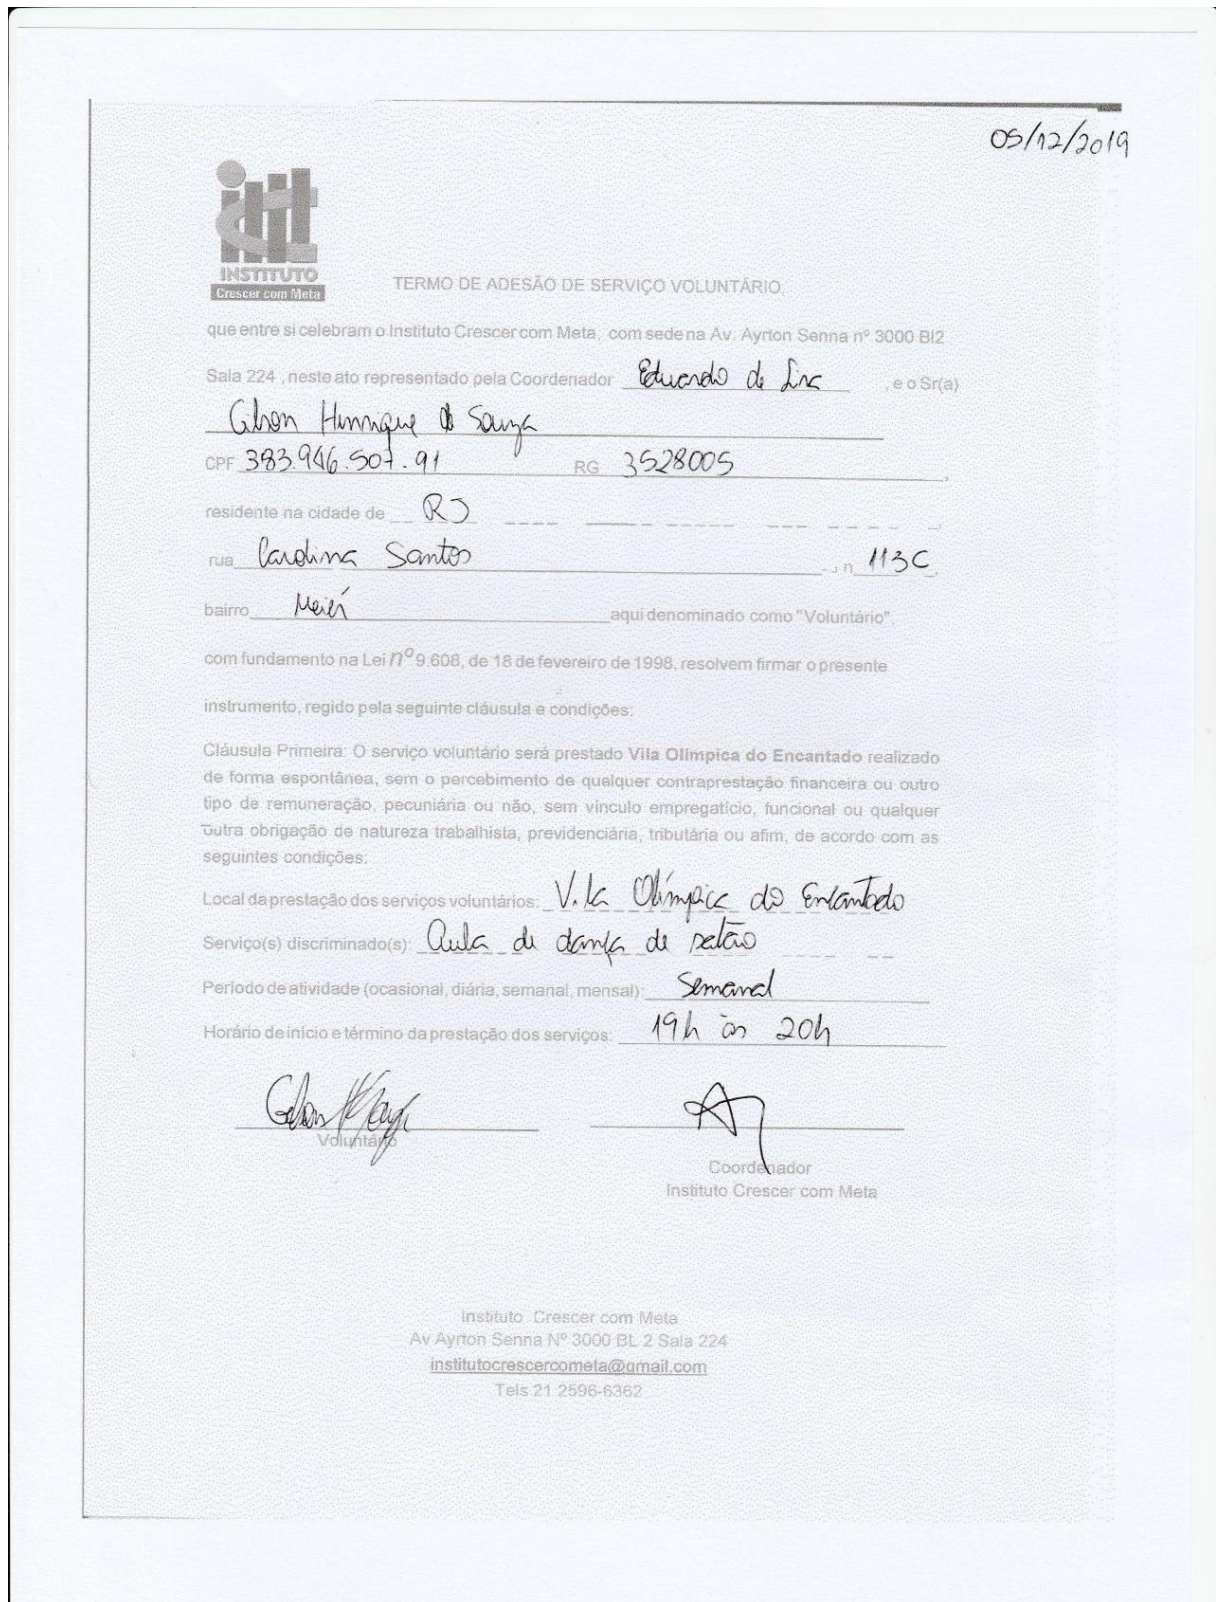 05/12/2019
INSTITUTO
Crescer com Meta
TERMO DE ADESÃO DE SERVIÇO VOLUNTÁRIO,
que entre si celebram o Instituto Crescer com Meta, com sede na Av. Ayrton Senna nº 3000 Bl2
Sala 224 , neste ato representado pela Coordenador Eduardo de , e o Sr(a)
Henrique de Souza
CPF 383.946.507.91 RG 3528005,
residente na cidade de RJ
rua Carolina Santos, n 113C,
bairro Meier aqui denominado como "Voluntário",
com fundamento na Lei nº 9.608, de 18 de fevereiro de 1998, resolvem firmar o presente
instrumento, regido pela seguinte cláusula e condições:
Cláusula Primeira: O serviço voluntário será prestado Vila Olímpica do Encantado realizado
de forma espontânea, sem o percebimento de qualquer contraprestação financeira ou outro
tipo de remuneração, pecuniária ou não, sem vínculo empregatício, funcional ou qualquer
outra obrigação de natureza trabalhista, previdenciária, tributária ou afim, de acordo com as
seguintes condições:
Local da prestação dos serviços voluntários: Vila Olímpica do Encantado
Serviço(s) discriminado(s): Aula de dança de salão
Período de atividade (ocasional, diária, semanal, mensal): Semanal
Horário de início e término da prestação dos serviços: 19h às 20h
Voluntário
Coordenador
Instituto Crescer com Meta
Instituto Crescer com Meta
Av Ayrton Senna Nº 3000 BL 2 Sala 224
institutocrescercometa@gmail.com
Tels 21 2596-6362